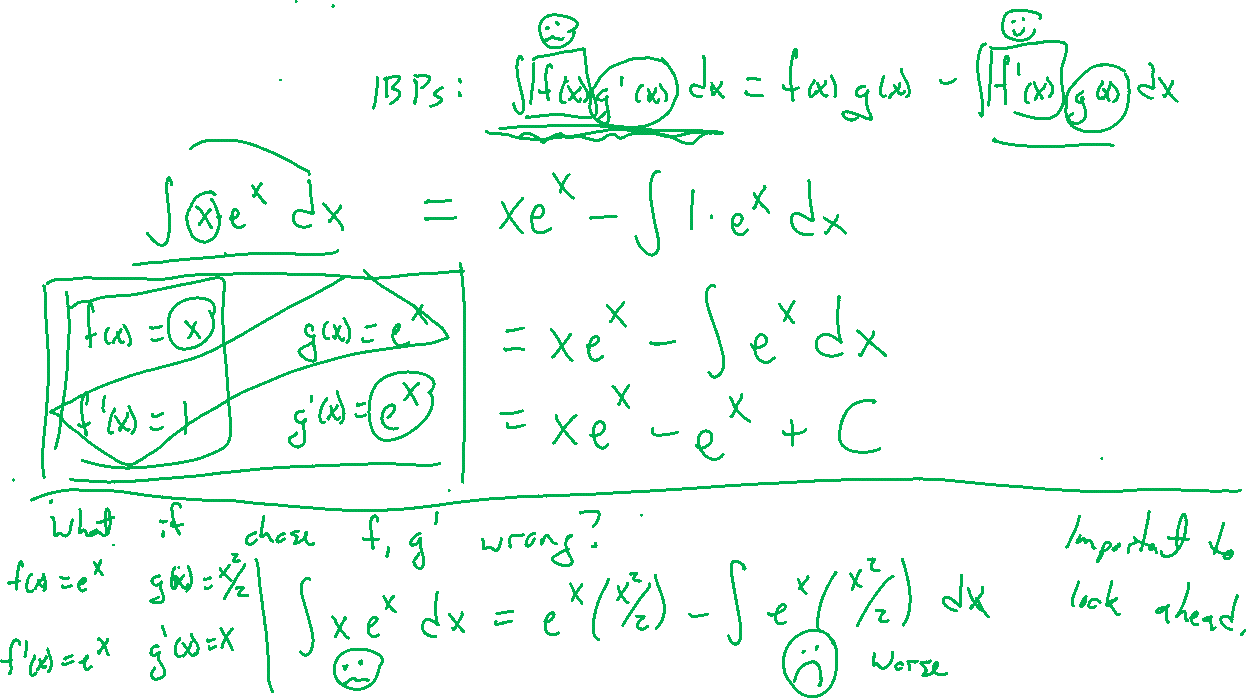 IBPs: ∫ f(x) g'(x) dx = f(x) g(x) - ∫ f'(x) g(x) dx
∫ x e^x dx = xe^x - ∫ 1 · e^x dx
f(x) = x g(x) = e^x = xe^x - ∫ e^x dx
f'(x) = 1 g'(x) = e^x = xe^x - e^x + C
What if chose f, g' wrong?
f(x) = e^x g(x) = x^2/2
f'(x) = e^x g'(x) = x
∫ x e^x dx = e^x (x^2/2) - ∫ e^x (x^2/2) dx
worse
Important to
look ahead.